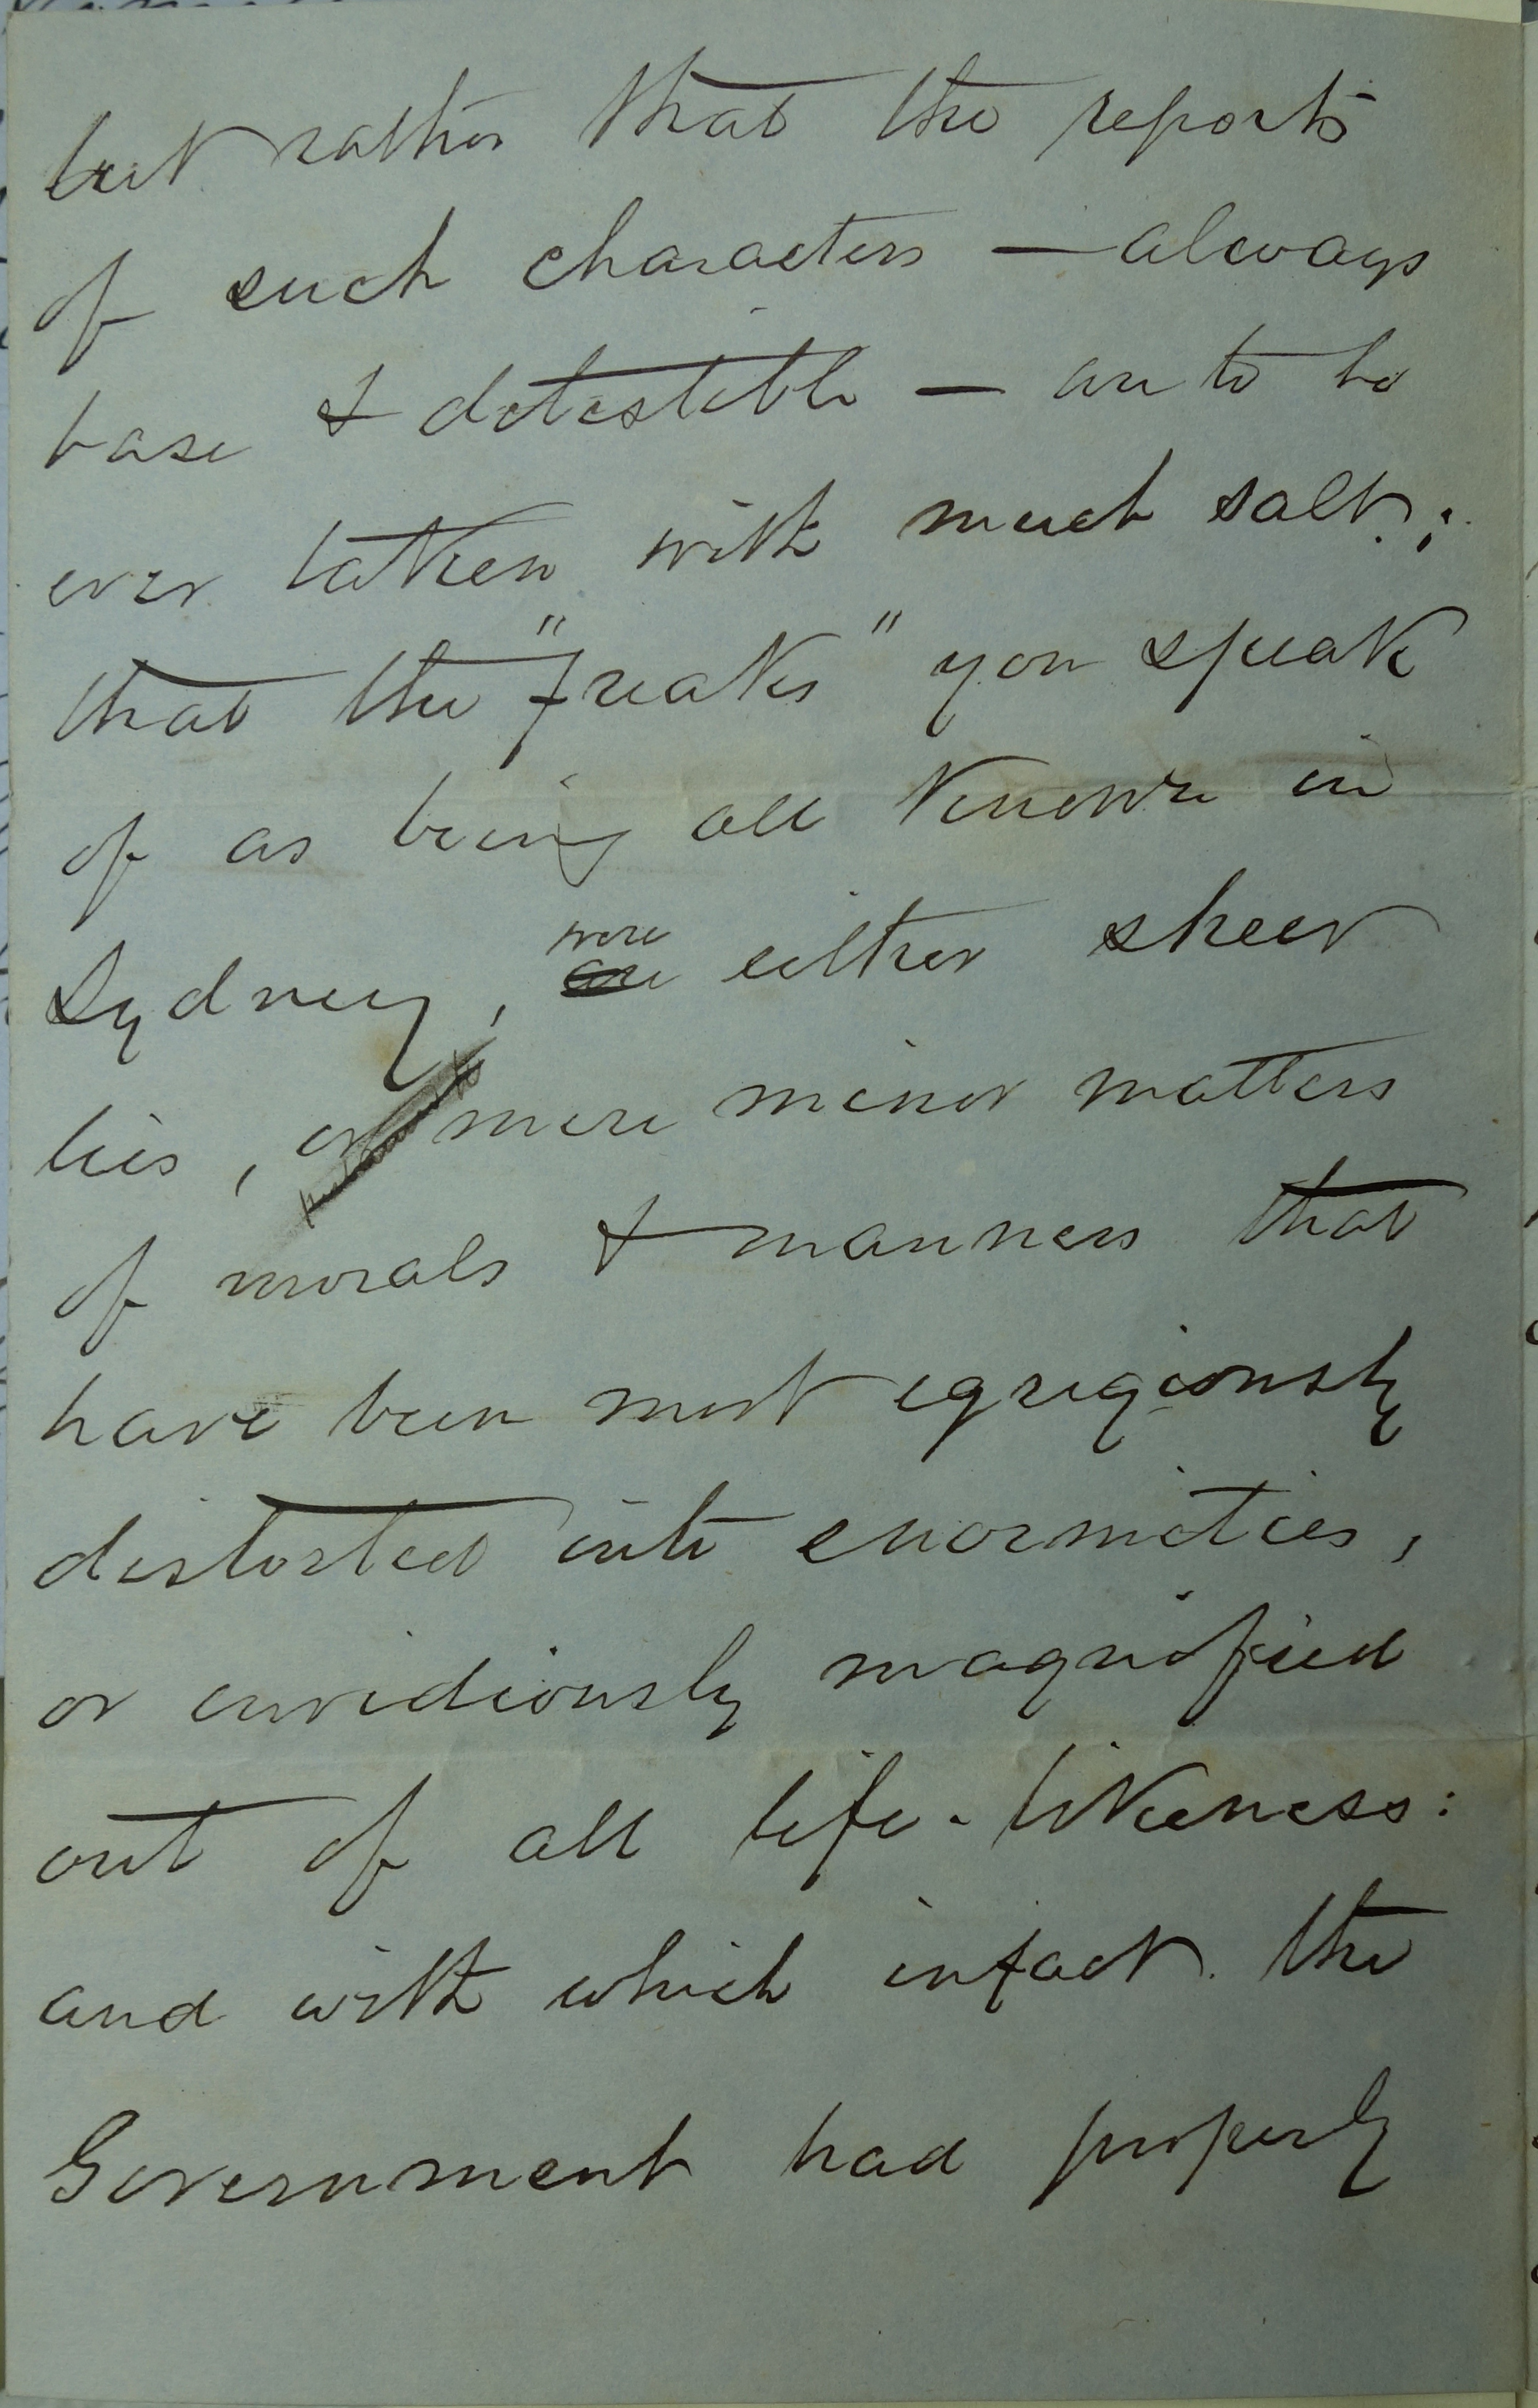 but rather that the reports
of such characters — always
base & detestible — are to be
ever taken with much salt;
that the "freaks" you speak
of as being all known in
Sydney, were either sheer
lies, or mere minor matters
of morals & manners that
have been most egregiously
distorted into enormities,
or invidiously magnified
out of all life-likeness:
and with which infact the
Government had properly